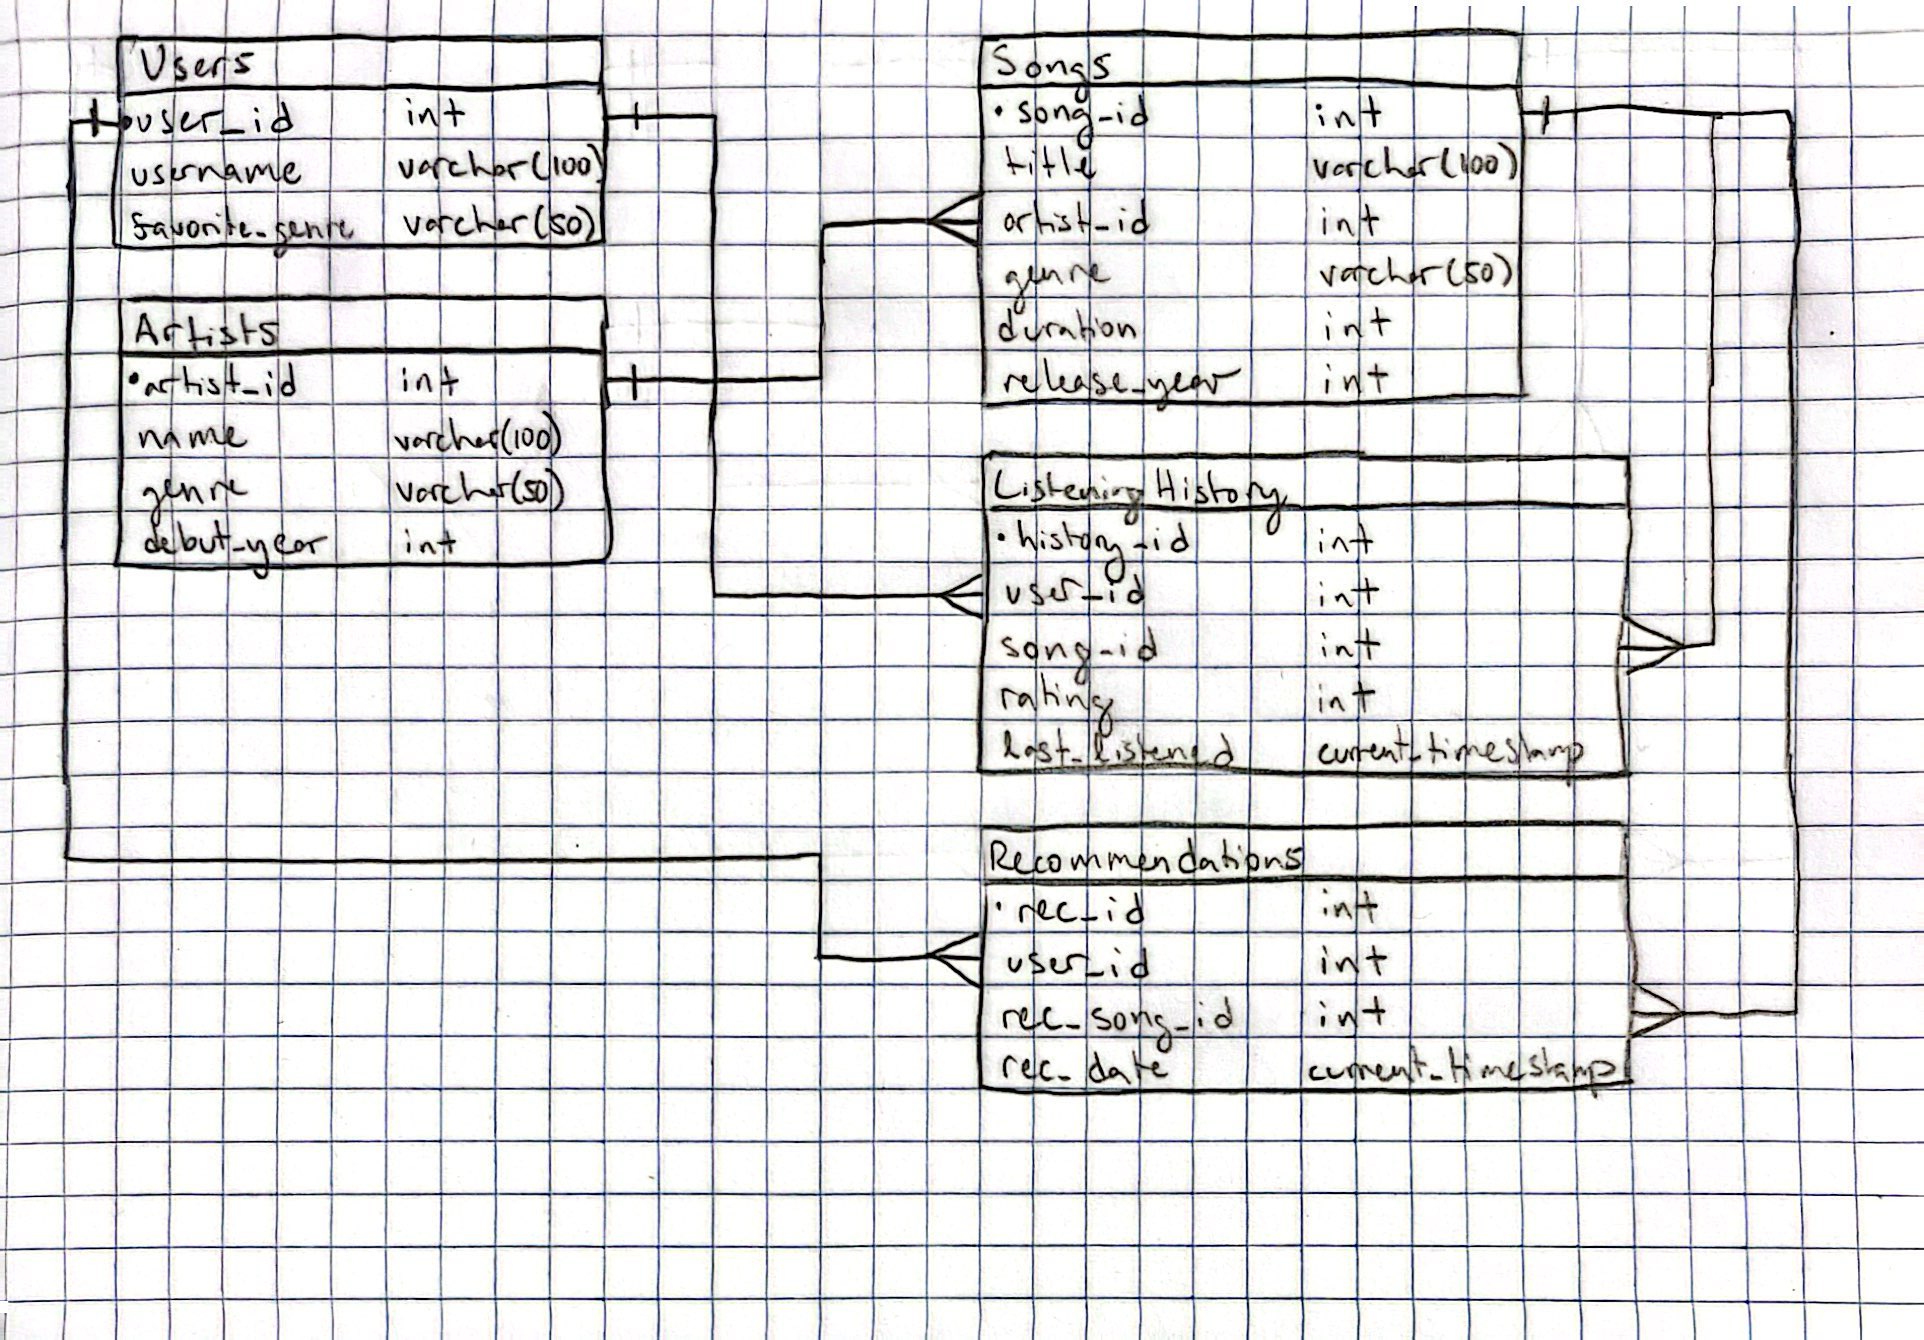 Users
user_id int
username varchar(100)
favorite_genre varchar(50)
Artists
artist_id int
name varchar(100)
genre varchar(50)
debut_year int
Songs
song_id int
title varchar(100)
artist_id int
genre varchar(50)
duration int
release_year int
Listening History
history_id int
user_id int
song_id int
rating int
last_listened current_timestamp
Recommendations
rec_id int
user_id int
rec_song_id int
rec_date current_timestamp